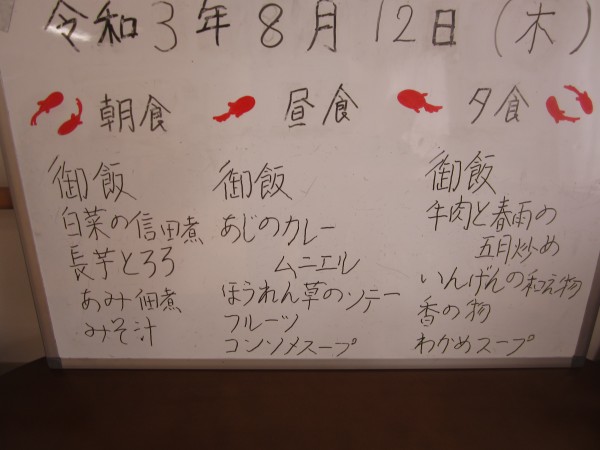 令和3年8月12日(木)
朝食
御飯
白菜の信田煮
長芋とろろ
あみ佃煮
みそ汁
昼食
御飯
あじのカレー
ムニエル
ほうれん草のソテー
フルーツ
コンソメスープ
夕食
御飯
牛肉と春雨の
五目炒め
いんげんの和え物
香の物
わかめスープ